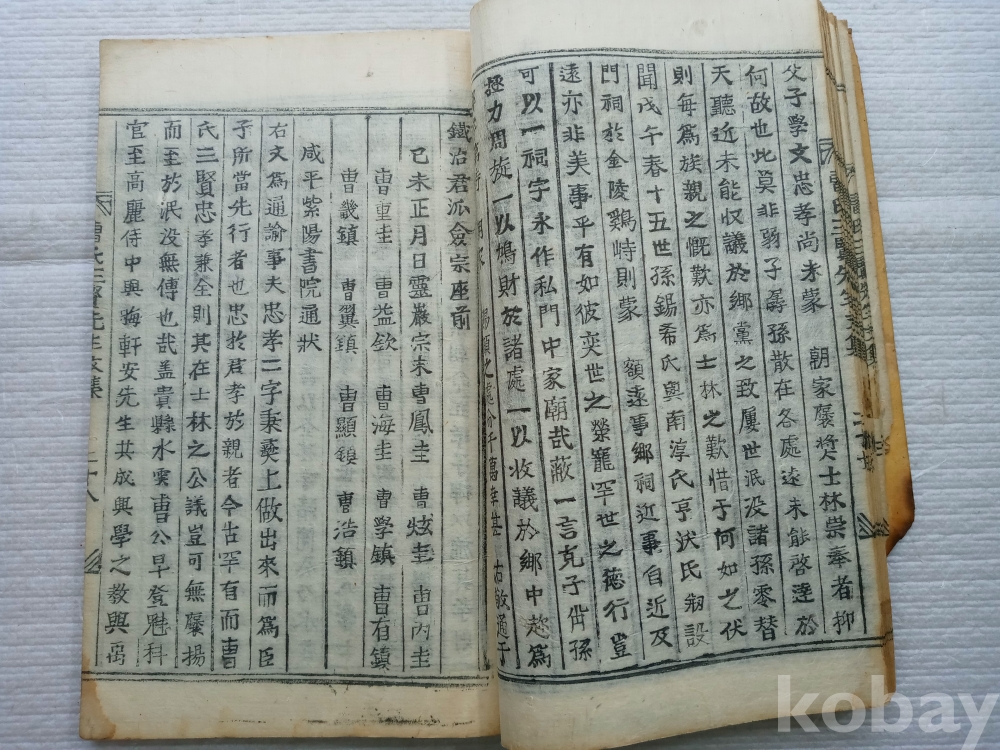 父子學文忠孝尚未蒙 朝家褒奬士林崇奉者抑
何故也此莫非弱子孱孫散在各處遠未能啓達於
天聽近未能収議於鄕黨之致屢世泯没諸孫零替
則每爲族親之慨歎亦爲士林之歎惜于何如之伏
聞戊午春十五世孫錫希氏與南淳氏亨洑氏刱設
門祠於金陵鷄峙則蒙 額遠事鄕祠近事自近及
遠亦非美事乎有如彼奕世之榮寵罕世之德行豈
可以一祠宇永作私門中家廟哉蔽一言克子肖孫
極力周旋一以鳩財於諸處一以收議於鄕中趂爲
之處分千萬幸甚 右敬通于
鐵冶君派僉宗座前
己未正月日靈巖宗末曺鳳圭 曺炫圭 曺內圭
曺重圭 曺益欽 曺海圭 曺學鎮 曺有鎮
曺畿鎮 曺翼鎮 曺顯鎮 曺浩鎮
咸平紫陽書院通狀
右文爲通諭事夫忠孝二字秉彛上做出來而爲臣
子所當先行者也忠於君孝於親者今古罕有而曺
氏三賢忠孝兼全則其在士林之公議豈可無褒揚
而至於泯没無傳也哉盖貴縣水雲曺公早登魁科
官至高麗侍中與晦軒安先生共成興學之敎與禹
曺氏三賢先生实集
二十八
kobay